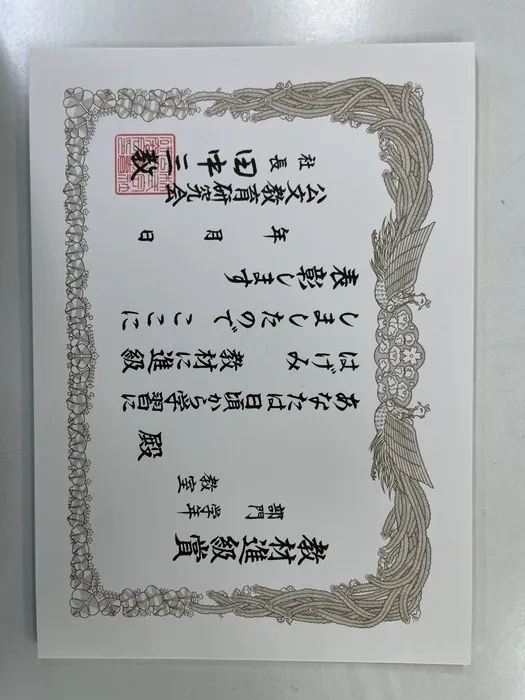 教材進級賞
部門 学年
教室
殿
あなたは日頃から学習に
はげみ 教材に進級
しましたので ここに
表彰します
年 月 日
公文教育研究会
社長 田中三教